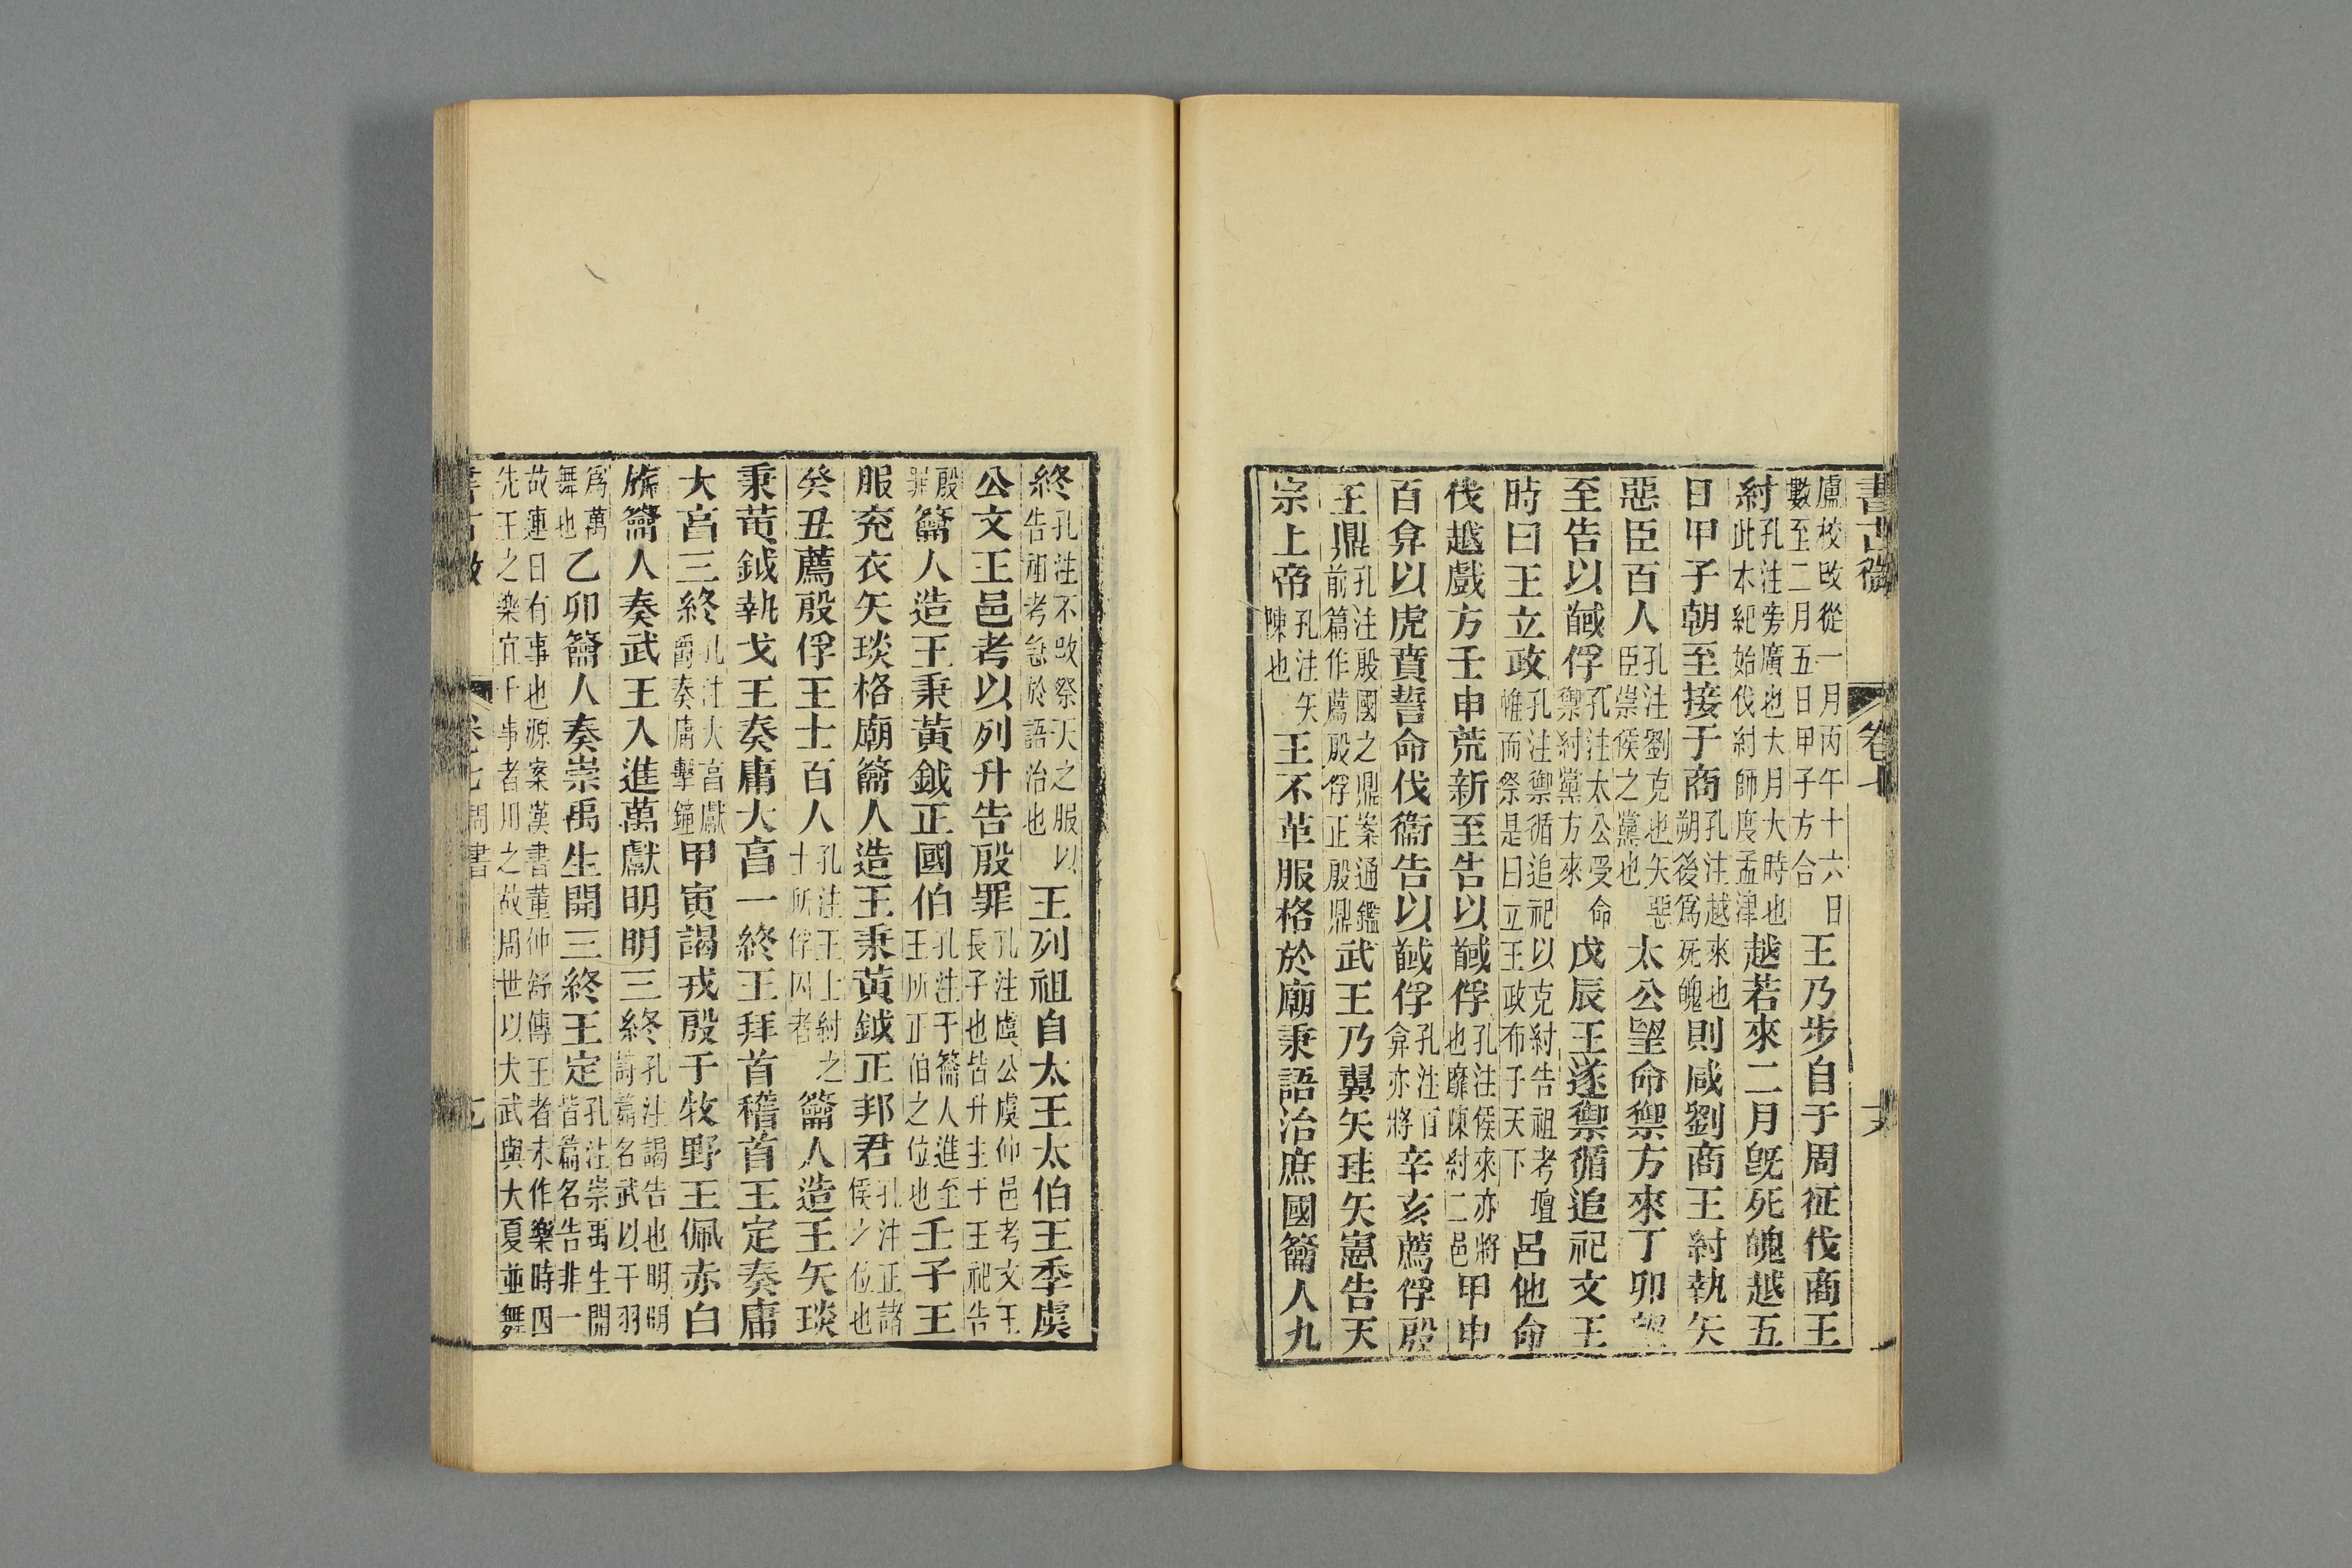 書古微 卷七
盧校改從一月丙午十六日數至二月五日甲子方合王乃步自于周征伐商王
紂孔注旁廣也大月大時也此本紀始伐紂師度孟津越若來二月旣死魄越五
日甲子朝至接于商孔注越來也朔後爲死魄則咸劉商王紂執矢
惡臣百人孔注劉克也矢惡臣崇侯之黨也太公望命禦方來丁卯望
至告以馘俘孔注太公受命禦紂黨方來戊辰王遂禦循追祀文王
時日王立政孔注禦循追祀以克紂告祖考壇帷而祭是日立王政布于天下呂他命
伐越戲方壬申荒新至告以馘俘孔注侯來亦將也靡陳紂二邑甲申
百弇以虎賁誓命伐衞告以馘俘孔注百弇亦將辛亥薦俘殷
王鼎孔注殷國之鼎案通鑑前篇作薦殷俘正殷鼎武王乃翼矢珪矢憲告天
宗上帝孔注矢陳也王不革服格於廟秉語治庶國籥人九
終孔注不改祭天之服以告祖考急於語治也王列祖自太王太伯王季虞
公文王邑考以列升告殷罪孔注虞公虞仲邑考文王長子也皆升主于王祀告
殷罪籥人造王秉黃鉞正國伯孔注于籥人進至王所正伯之位也壬子王
服兗衣矢琰格廟籥人造王秉黃鉞正邦君孔注正諸侯之位也
癸丑薦殷俘王士百人孔注王士紂之士所俘囚者籥人造王矢琰
秉黃鉞執戈王奏庸大亯一終王拜首稽首王定奏庸
大亯三終孔注大亯獻爵奏庸擊鐘甲寅謁戎殷于牧野王佩赤白
旂籥人奏武王入進萬獻明明三終孔注謁告也明明詩篇名武以干羽
爲萬舞也乙卯籥人奏崇禹生開三終王定孔注崇禹生開皆篇名告非一
故連日有事也源案漢書董仲舒傳王者未作樂時因先王之樂宜于事者用之故周世以大武與大夏並舞
卷七周書